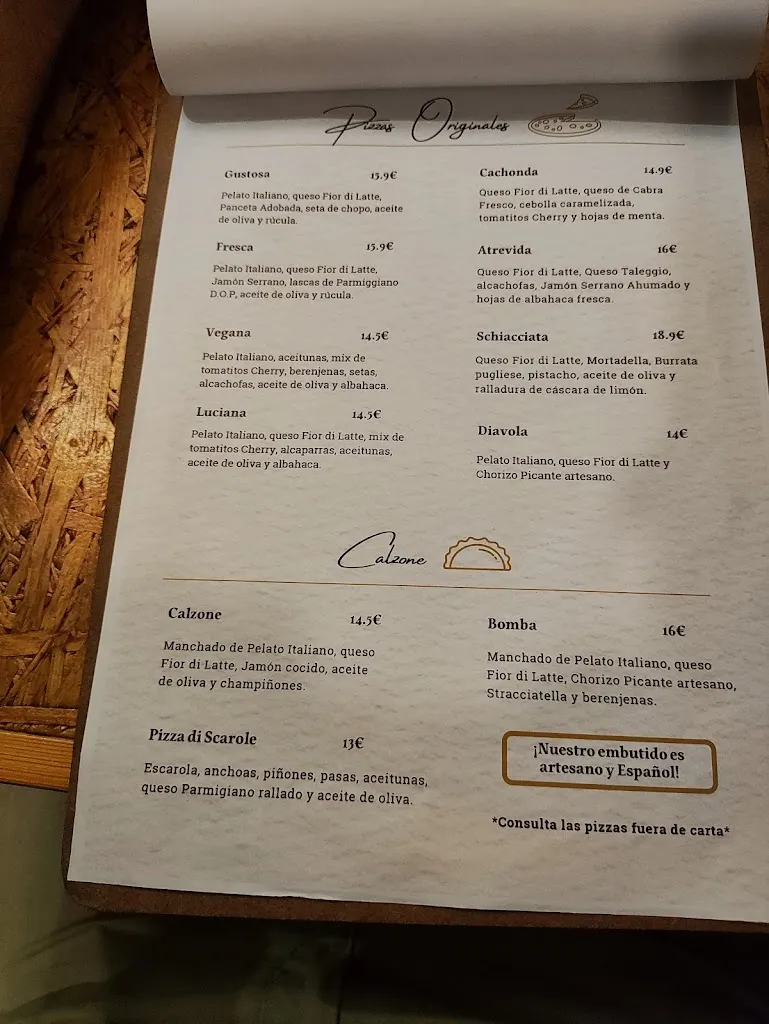 Pizzas Originales
Gustosa 15.9€
Pelato Italiano, queso Fior di Latte,
Panceta Adobada, seta de chopo, aceite
de oliva y rúcula.
Fresca 15.9€
Pelato Italiano, queso Fior di Latte,
Jamón Serrano, lascas de Parmiggiano
D.O.P, aceite de oliva y rúcula.
Vegana 14.5€
Pelato Italiano, aceitunas, mix de
tomatitos Cherry, berenjenas, setas,
alcachofas, aceite de oliva y albahaca.
Luciana 14.5€
Pelato Italiano, queso Fior di Latte, mix de
tomatitos Cherry, alcaparras, aceitunas,
aceite de oliva y albahaca.
Cachonda 14.9€
Queso Fior di Latte, queso de Cabra
Fresco, cebolla caramelizada,
tomatitos Cherry y hojas de menta.
Atrevida 16€
Queso Fior di Latte, Queso Taleggio,
alcachofas, Jamón Serrano Ahumado y
hojas de albahaca fresca.
Schiacciata 18.9€
Queso Fior di Latte, Mortadella, Burrata
pugliese, pistacho, aceite de oliva y
ralladura de cáscara de limón.
Diavola 14€
Pelato Italiano, queso Fior di Latte y
Chorizo Picante artesano.
Calzone
Calzone 14.5€
Manchado de Pelato Italiano, queso
Fior di Latte, Jamón cocido, aceite
de oliva y champiñones.
Pizza di Scarole 13€
Escarola, anchoas, piñones, pasas, aceitunas,
queso Parmigiano rallado y aceite de oliva.
Bomba 16€
Manchado de Pelato Italiano, queso
Fior di Latte, Chorizo Picante artesano,
Stracciatella y berenjenas.
¡Nuestro embutido es
artesano y Español!
*Consulta las pizzas fuera de carta*